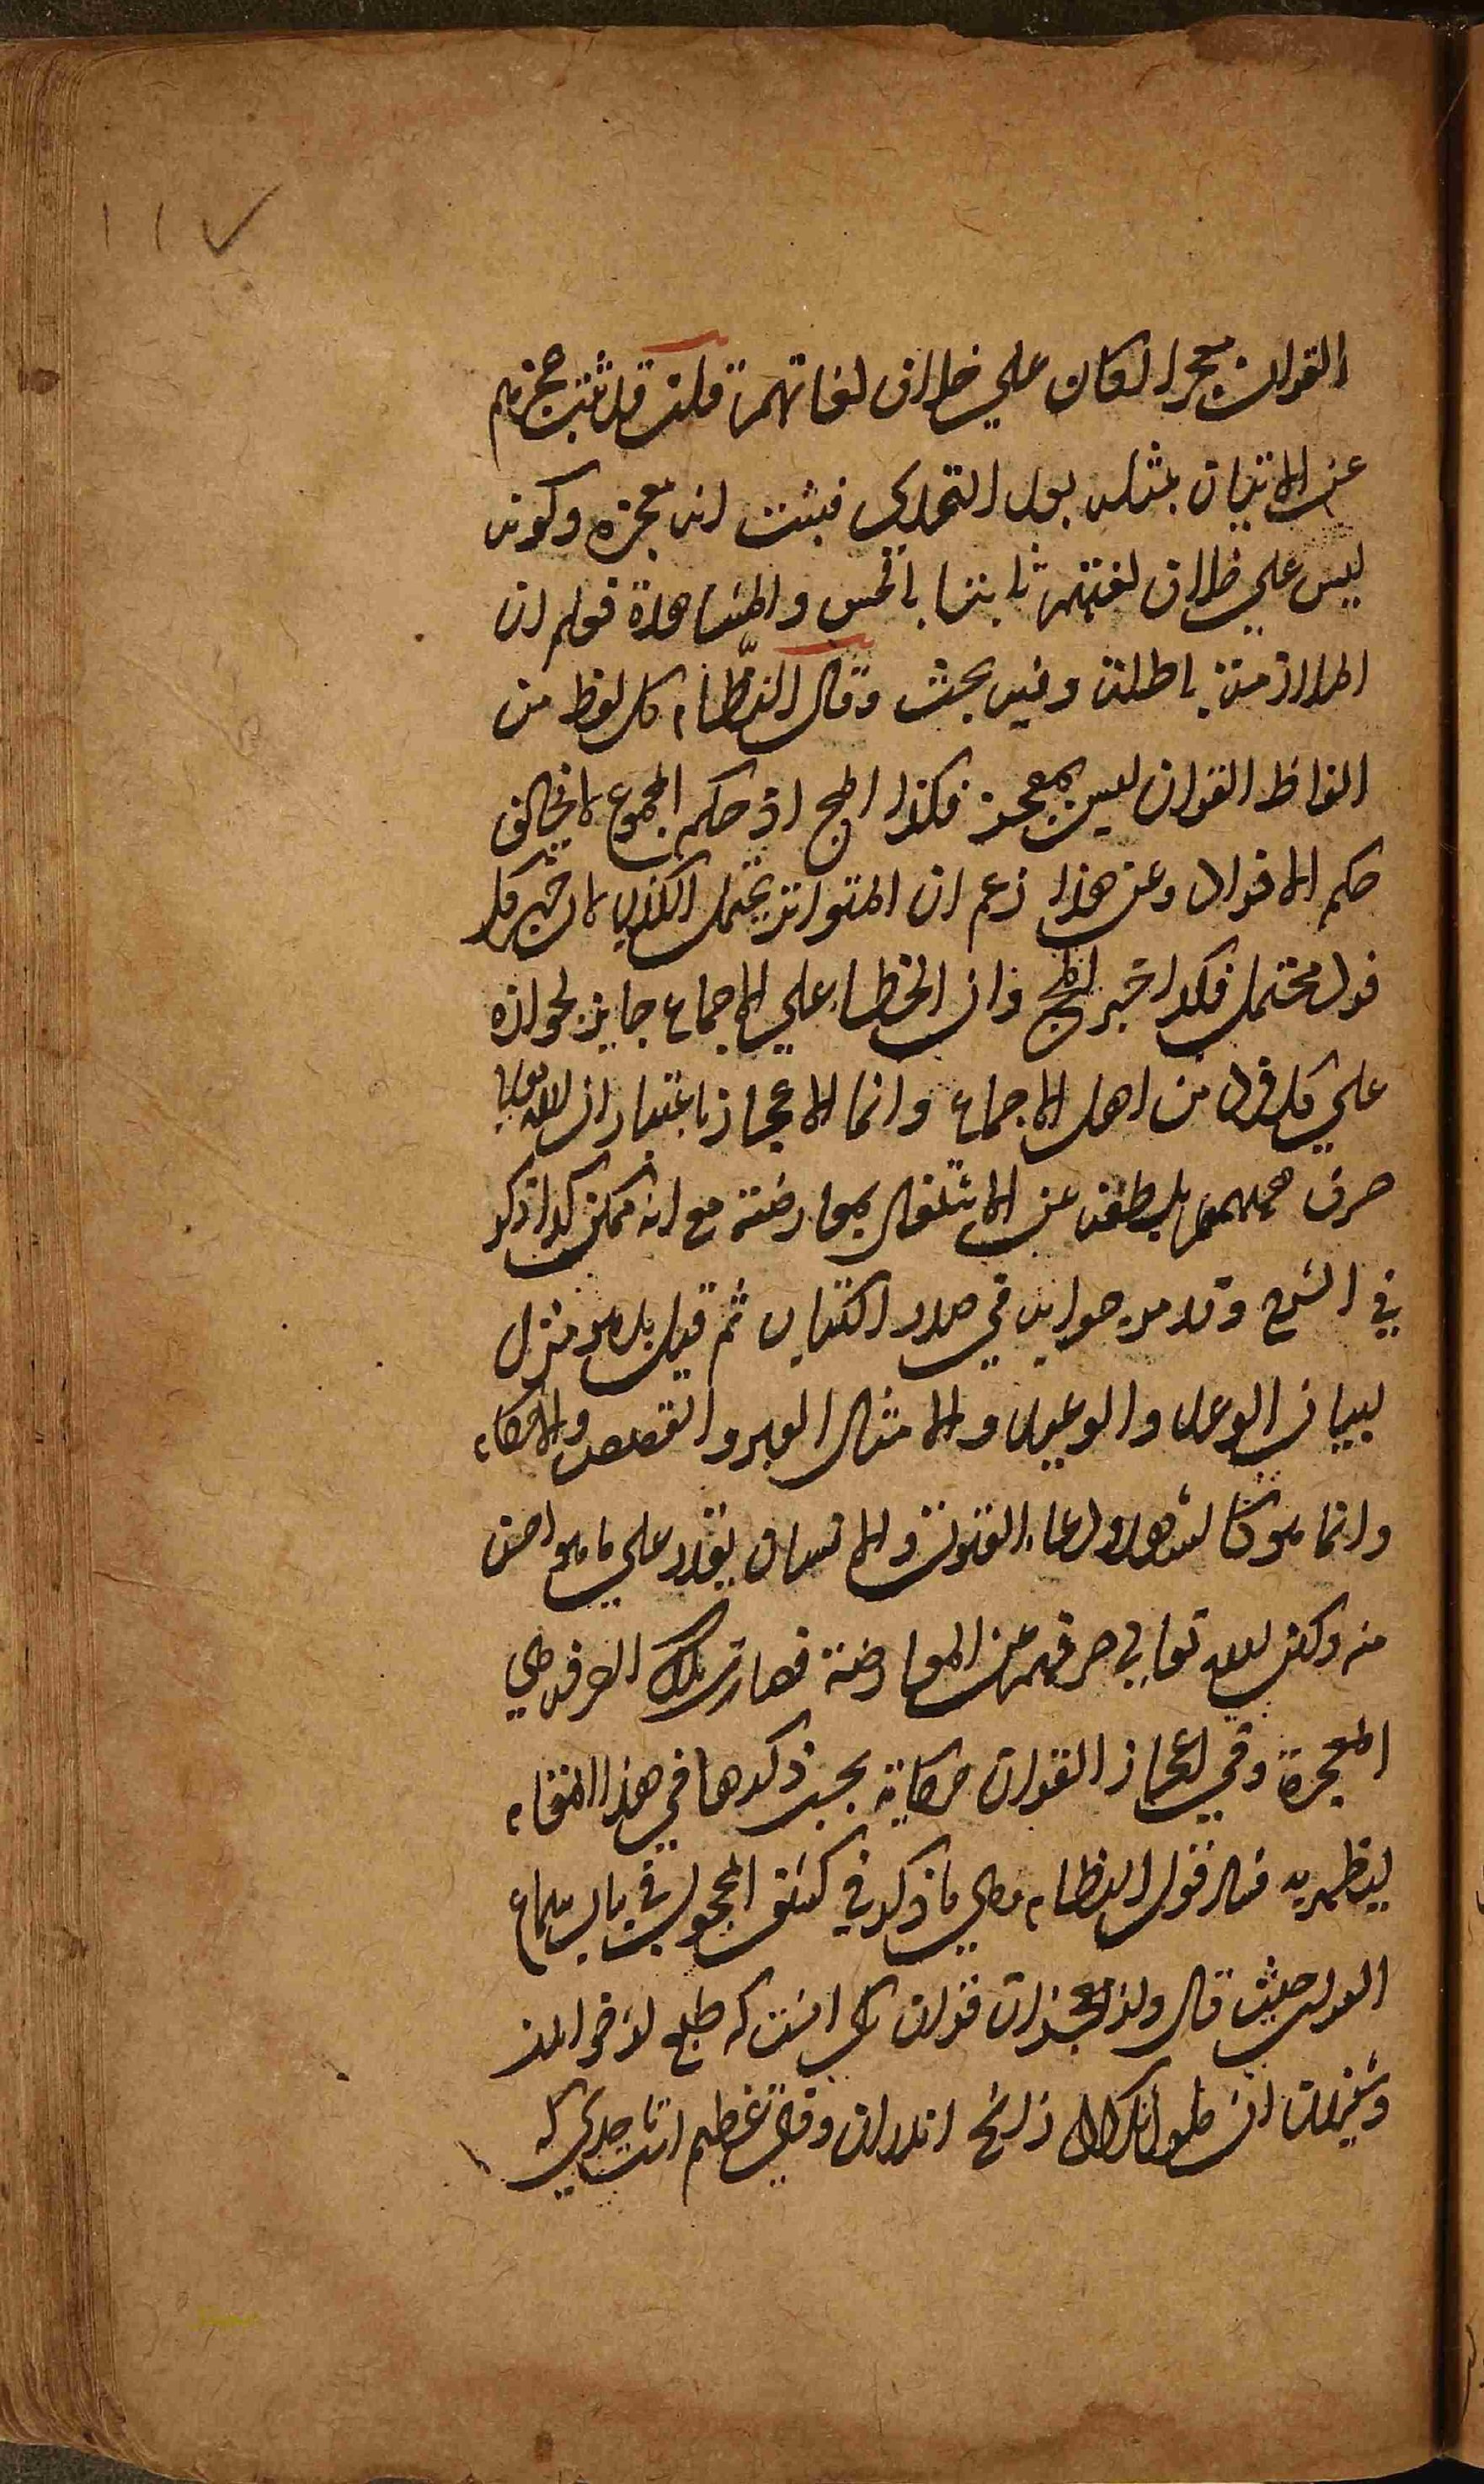 القران معجزا لكان علي خلاف لغاتهم قلت قد ثبت عجزهم
عن الاتيان بمثله بعد التحدي فيثبت انه معجزة وكونه
ليس علي خلاف لغتهم ثابتا بالحس والمشاهدة فعلم ان
الملازمة باطلة وفيه بحث وقال النظّام كل لفظ من
الفاظ القران ليس بمعجز فكذا المج اذ حكم المجموع لا يخالف
حكم الافراد وعن هذا زعم ان المتواتر يحتمل الكذب لان خبر كل
فرد محتمل فكذا خبر المج وان الخطاء علي الاجماع جايز لجوازه
علي كل فرد من اهل الاجماع وانما الاعجاز باعتبار ان الله تعالي
صرف هممهم بلطفه عن الاشتغال بمعارضته مع انه ممكن كذا ذكر
في الشرح وقد مر جوابه في صدر الكتاب ثم قيل بل هو منزل
لبيان الوعد والوعيد والامثال العبر والقصص والاحكام
وانما هو كالشهد ولدعاء القنوت والانسان يقدر علي ما هو احسن
منه ولكن الله تعالي صرفهم عن المعارضة فصارت تلك الصرفة هي
المعجزة وفي اعجاز القران حكاية يجب ذكرها في هذا المقام
ليظهر به فساد قول النظام وهي ما ذكر في كشف المحجوب في باب سماع
القران حيث قال واز معجزات قران يكي انست كه طبع از خواندن
وشنيدن ان ملول نگردد زانچه اندران رقتي عظيم است تا حدي كه